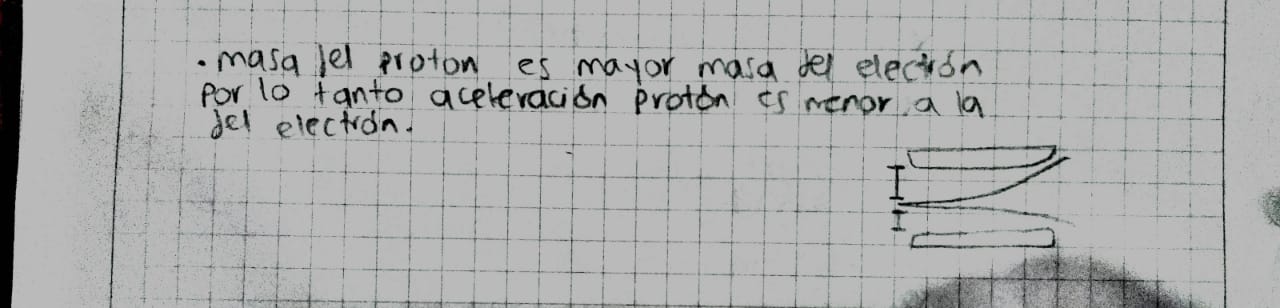 . masa del proton es mayor masa del electrón
por lo tanto aceleración protón es menor a la
del electrón.